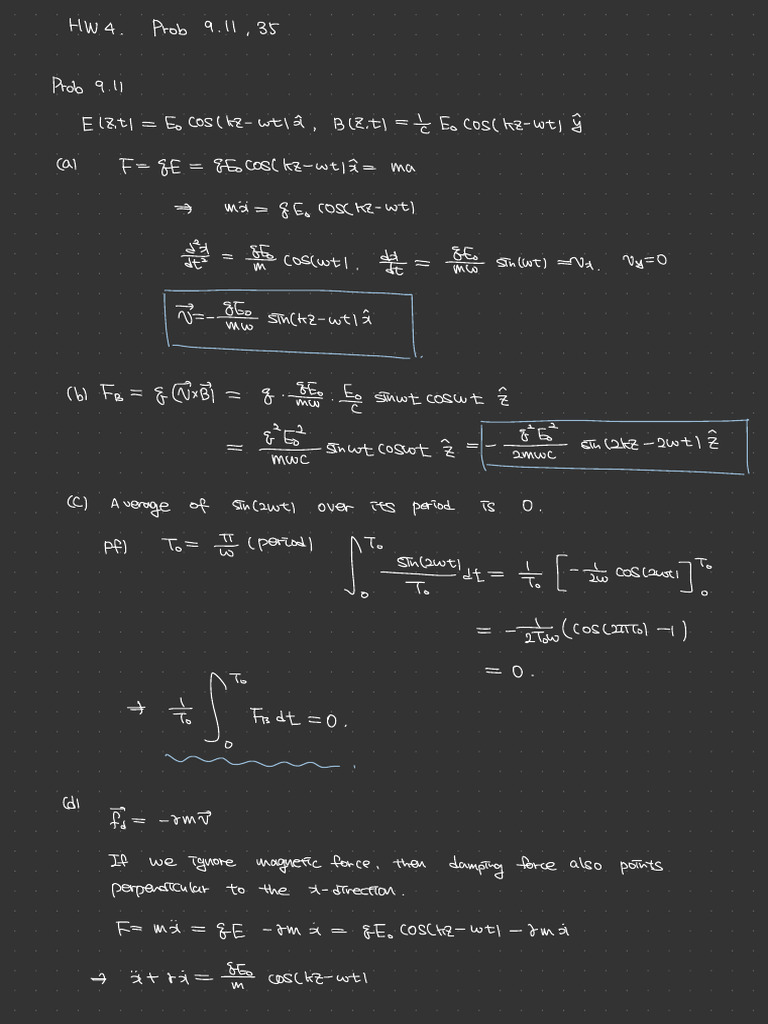 HW 4. Prob 9.11, 35
Prob 9.11
E(z,t) = E₀ cos(kz-wt) x̂, B(z,t) = 1/c E₀ cos(kz-wt) ŷ
(a) F = qE = qE₀ cos(kz-wt) x̂ = ma
⇒ mẍ = qE₀ cos(kz-wt)
d²x/dt² = qE₀/m cos(wt). dx/dt = qE₀/mw sin(wt) = vₓ. v_y = 0
v⃗ = - qE₀/mw sin(kz-wt) x̂.
(b) F_B = q(v⃗×B⃗) = q · qE₀/mw · E₀/c sinwt coswt ẑ
= q²E₀²/mwc sinwt coswt ẑ = - q²E₀²/2mwc sin(2kz-2wt) ẑ
(c) Average of sin(2wt) over its period is 0.
pf) T₀ = π/w (period) ∫₀^T₀ sin(2wt)/T₀ dt = 1/T₀ [-1/2w cos(2wt)]₀^T₀
= - 1/2T₀w (cos(2πT₀) - 1)
= 0.
→ 1/T₀ ∫₀^T₀ F_B dt = 0.
(d)
f⃗_d = -γmv⃗
If we ignore magnetic force, then damping force also points
perpendicular to the x-direction.
F = mẍ = qE - γmẋ = qE₀ cos(kz-wt) - γmẋ
→ ẍ + γẋ = qE₀/m cos(kz-wt)